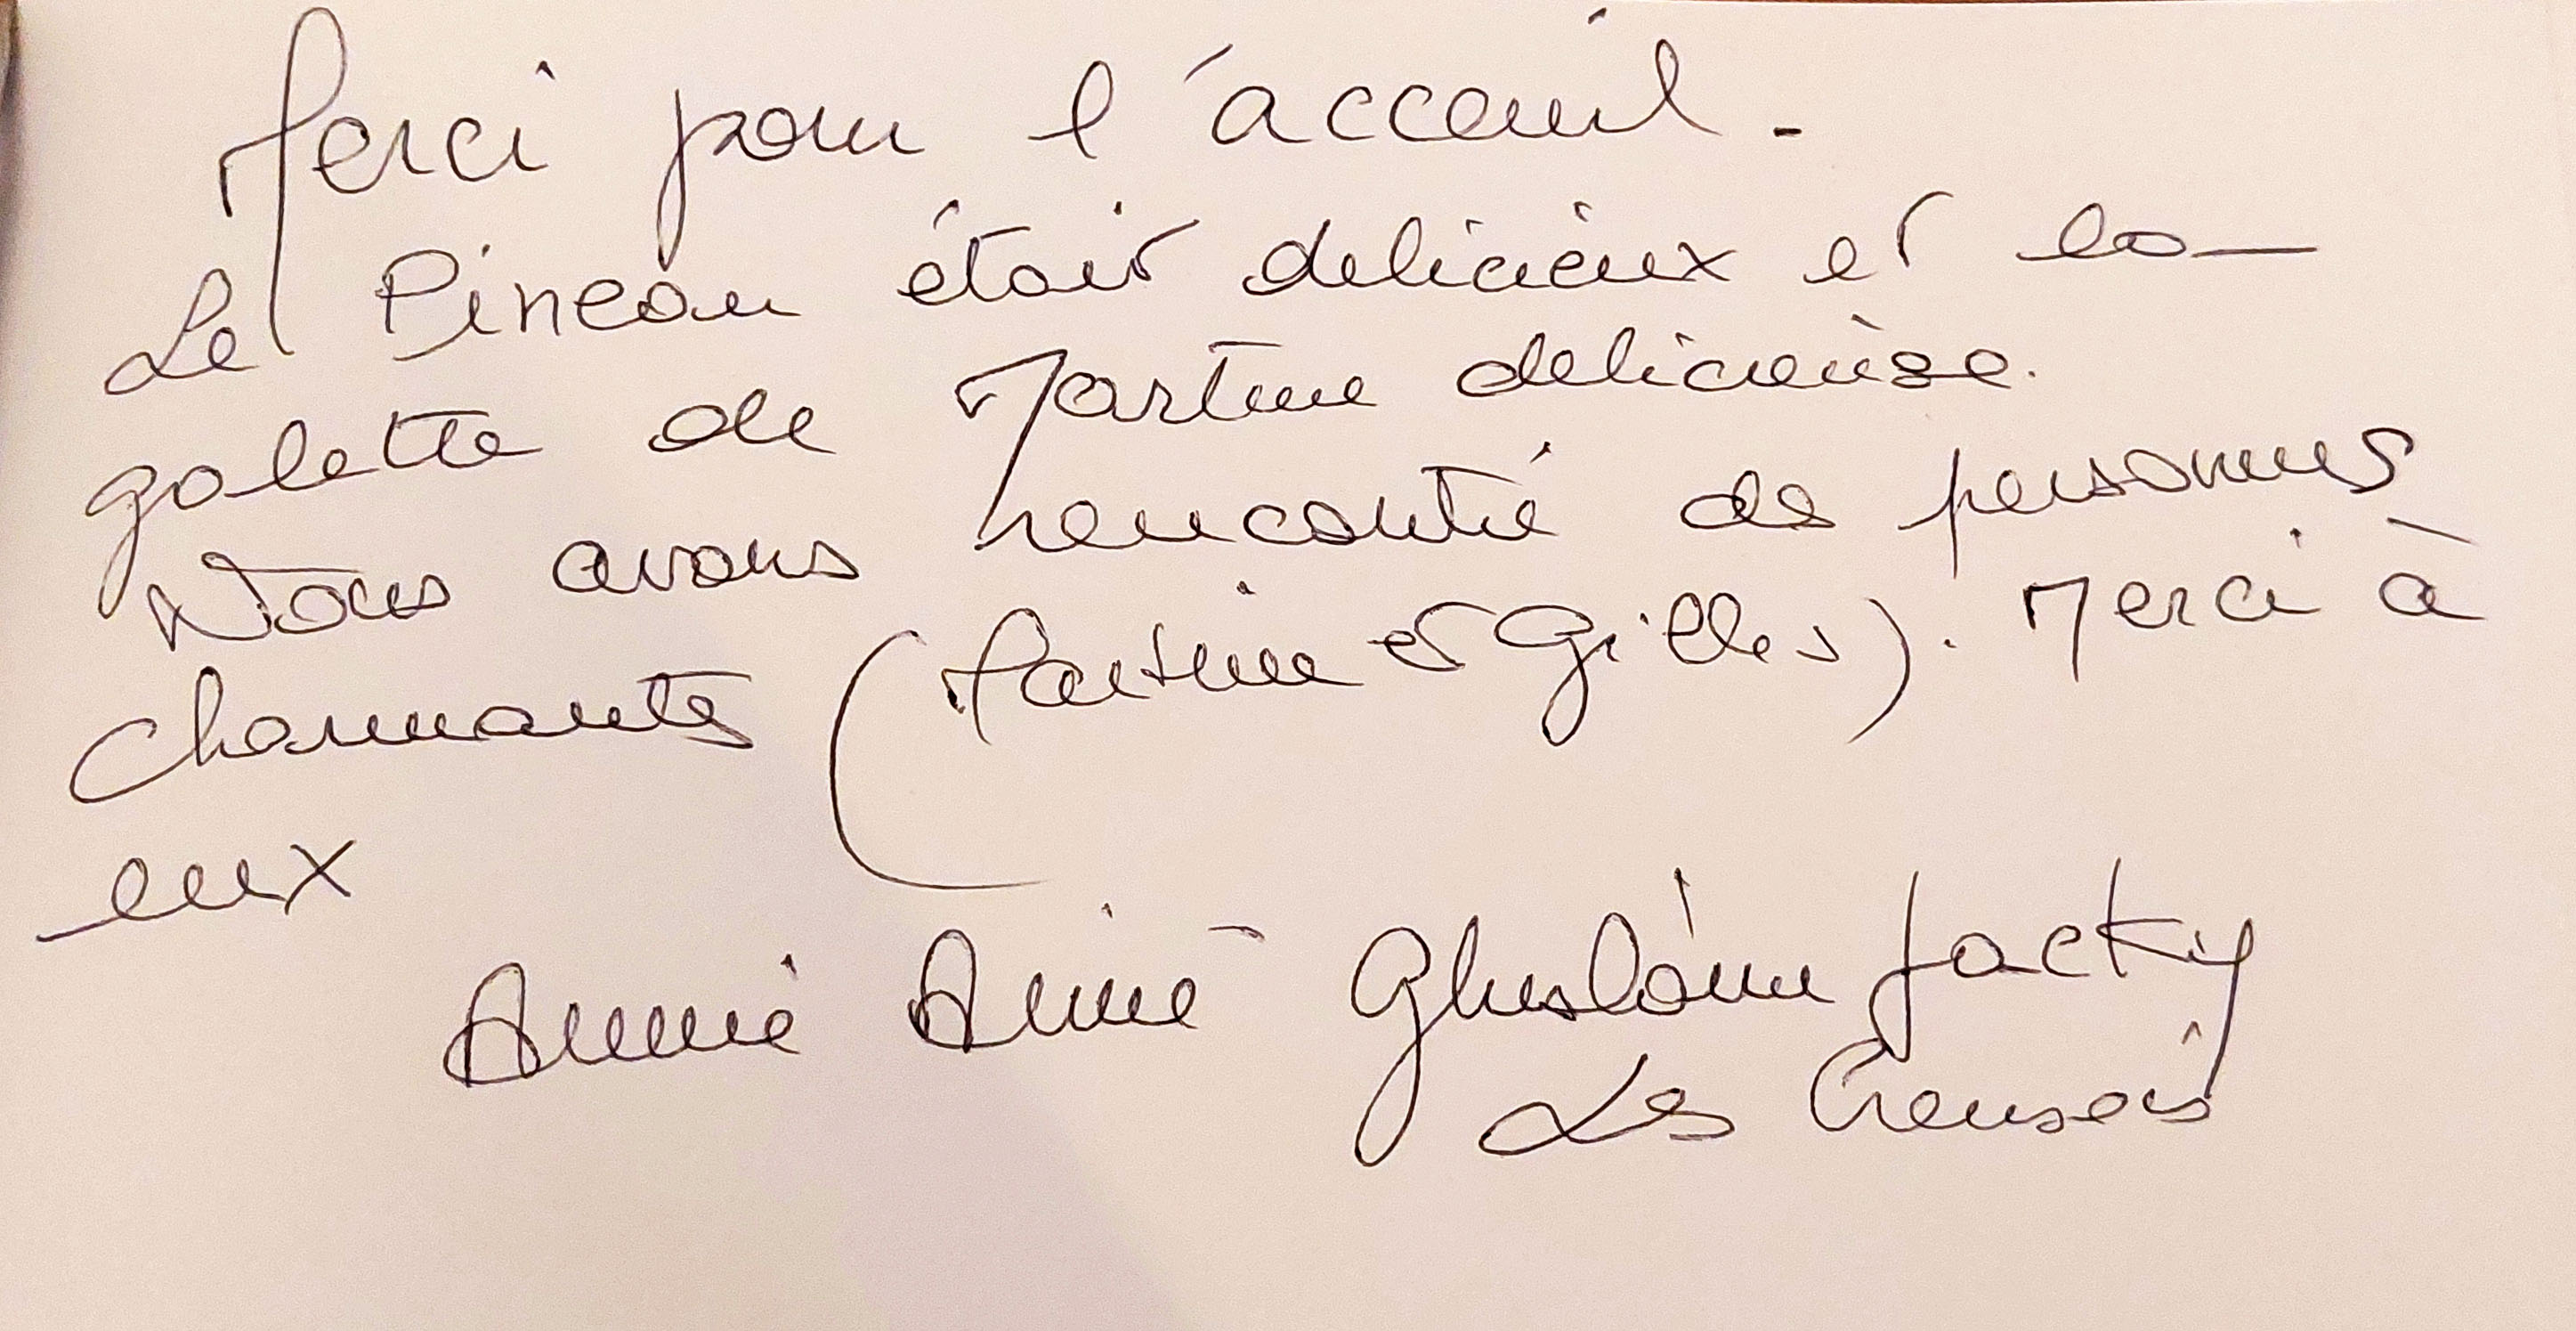 Merci pour l'acceuil.
Le Pineau était delicieux et la
galette de Martine delicieuse.
Nous avons rencontré des personnes
charmants (Martine et Gilles). Merci à
eux
Annie Aimé Ghislaine Jacky
Les Creusois